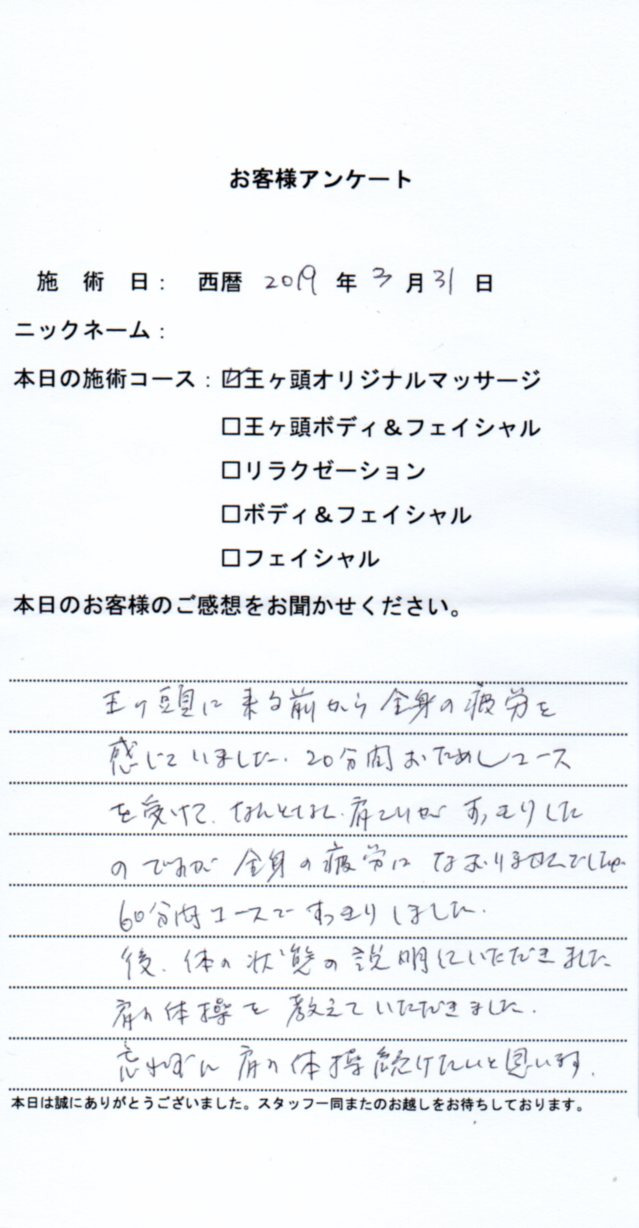 お客様アンケート
施 術 日： 西暦 2019 年 3 月 31 日
ニックネーム：
本日の施術コース：☑王ヶ頭オリジナルマッサージ
□王ヶ頭ボディ＆フェイシャル
□リラクゼーション
□ボディ＆フェイシャル
□フェイシャル
本日のお客様のご感想をお聞かせください。
王ヶ頭に来る前から全身の疲労を
感じていました。20分間おためしコース
を受けて、なんとなく、肩こりがすっきりした
のですが全身の疲労はなおりませんでしたが
60分間コースですっきりしました。
後、体の状態の説明にいただきました
肩の体操を教えていただきました。
忘れずに肩の体操続けたいと思います。
本日は誠にありがとうございました。スタッフ一同またのお越しをお待ちしております。